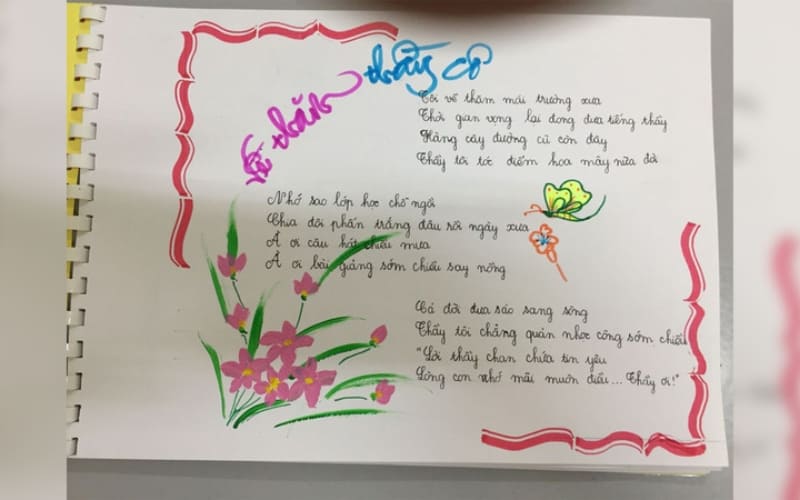 Về thăm thầy cô
Tôi về thăm mái trường xưa
Thời gian vọng lại dong đưa tiếng thầy
Hàng cây đường cũ còn đây
Thầy tôi tóc điểm hoa mây nửa đời
Nhớ sao lớp học chỗ ngồi
Chia đôi phấn trắng đâu rồi ngày xưa
Ầ ơi câu hát chiều mưa
Ầ ơi bài giảng sớm chiều say nồng
Cả đời đưa sáo sang sông
Thầy tôi chẳng quản nhọc công sớm chiều
"Lời thầy chan chứa tin yêu
Lòng con nhớ mãi muôn điều... Thầy ơi!"